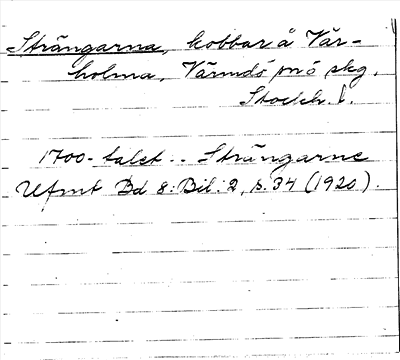 Strängarna, kobbar å Vår-
holma, Värmdö sn ö skg,
Stockh. l.
1700-talet .. Strängarne
Ufmt Bd 8: Bil. 2, s. 34 (1920).